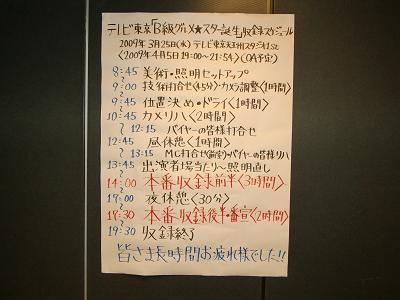 テレビ東京「B級グルメ★スター誕生」収録スケジュール
2009年3月25日(水) テレビ東京天王州スタジオ1st
<2009年4月5日19:00~21:54> (OA予定)
8:45 美術・照明セットアップ
9:00 技術打合せ<45分>・カメラ調整<1時間>
9:45 位置決め・ドライ<1時間>
10:45 カメリハ<2時間>
12:15 バイヤーの皆様打合せ
12:45 昼休憩<1時間>
13:15 MC打合せ(前室)・バイヤーの皆様リハ
13:45 出演者場当たり~照明直し
14:00 本番収録前半<3時間>
17:00 夜休憩<30分>
17:30 本番収録後半・番宣<2時間>
19:30 収録終了
皆さま長時間お疲れ様でした!!